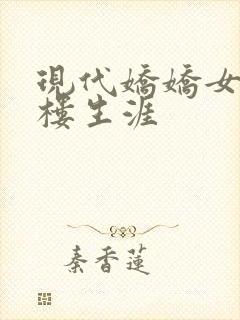 現代嬌嬌女
樓生涯
秦香蓮